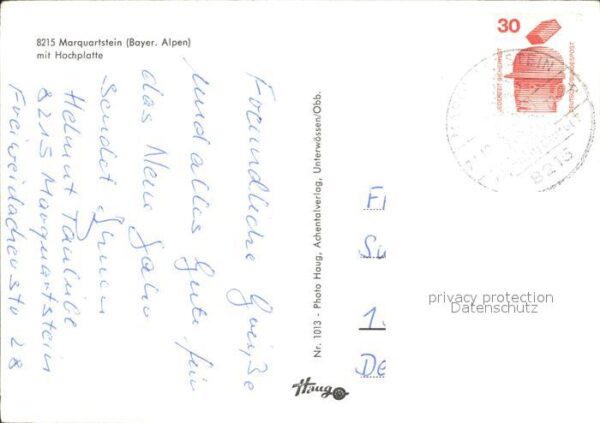 8215 Marquartstein (Bayer. Alpen)
mit Hochplatte
Freundliche Grüße
und alles Gute für
das Neue Jahr
sendet Ihnen
Helmut
8215 Marquartstein
28
Nr. 1013 - Photo Haug, Achentalverlag, Unterwössen/Obb.
Haug
30
JEDERZEIT SICHERHEIT
DEUTSCHE BUNDESPOST
8215
privacy protection
Datenschutz